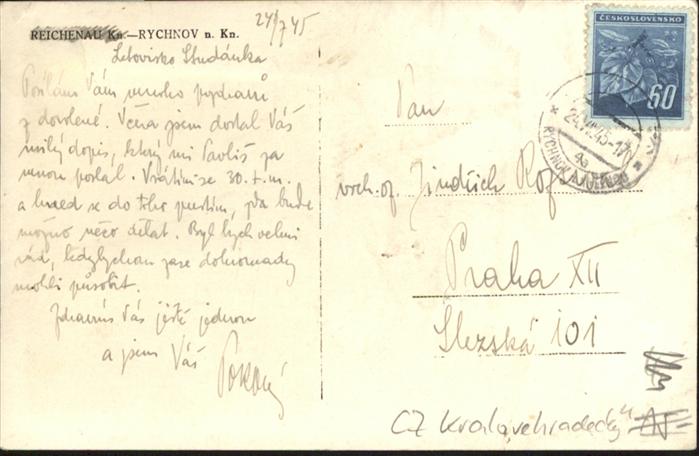 24/7 45
REICHENAU Kn.—RYCHNOV n. Kn.
Letovisko Studánka
Posílám Vám mnoho pozdravů
z dovolené. Včera jsem dostal Váš
milý dopis, který mi Pavliš za
mnou poslal. Vrátím se 30. t. m.
a hned se do toho pustím, bude
možno něco dělat. Byl bych velmi
rád, kdybychom zase dohromady
mohli působit.
Zdravím Vás ještě jednou
a jsem Váš
Pokorný
ČESKOSLOVENSKO
60
24.VII.45-17
4a
RYCHNOV
Pan
vrch. of. Jindřich
Praha XII
Slezská 101
CZ Královehradecký